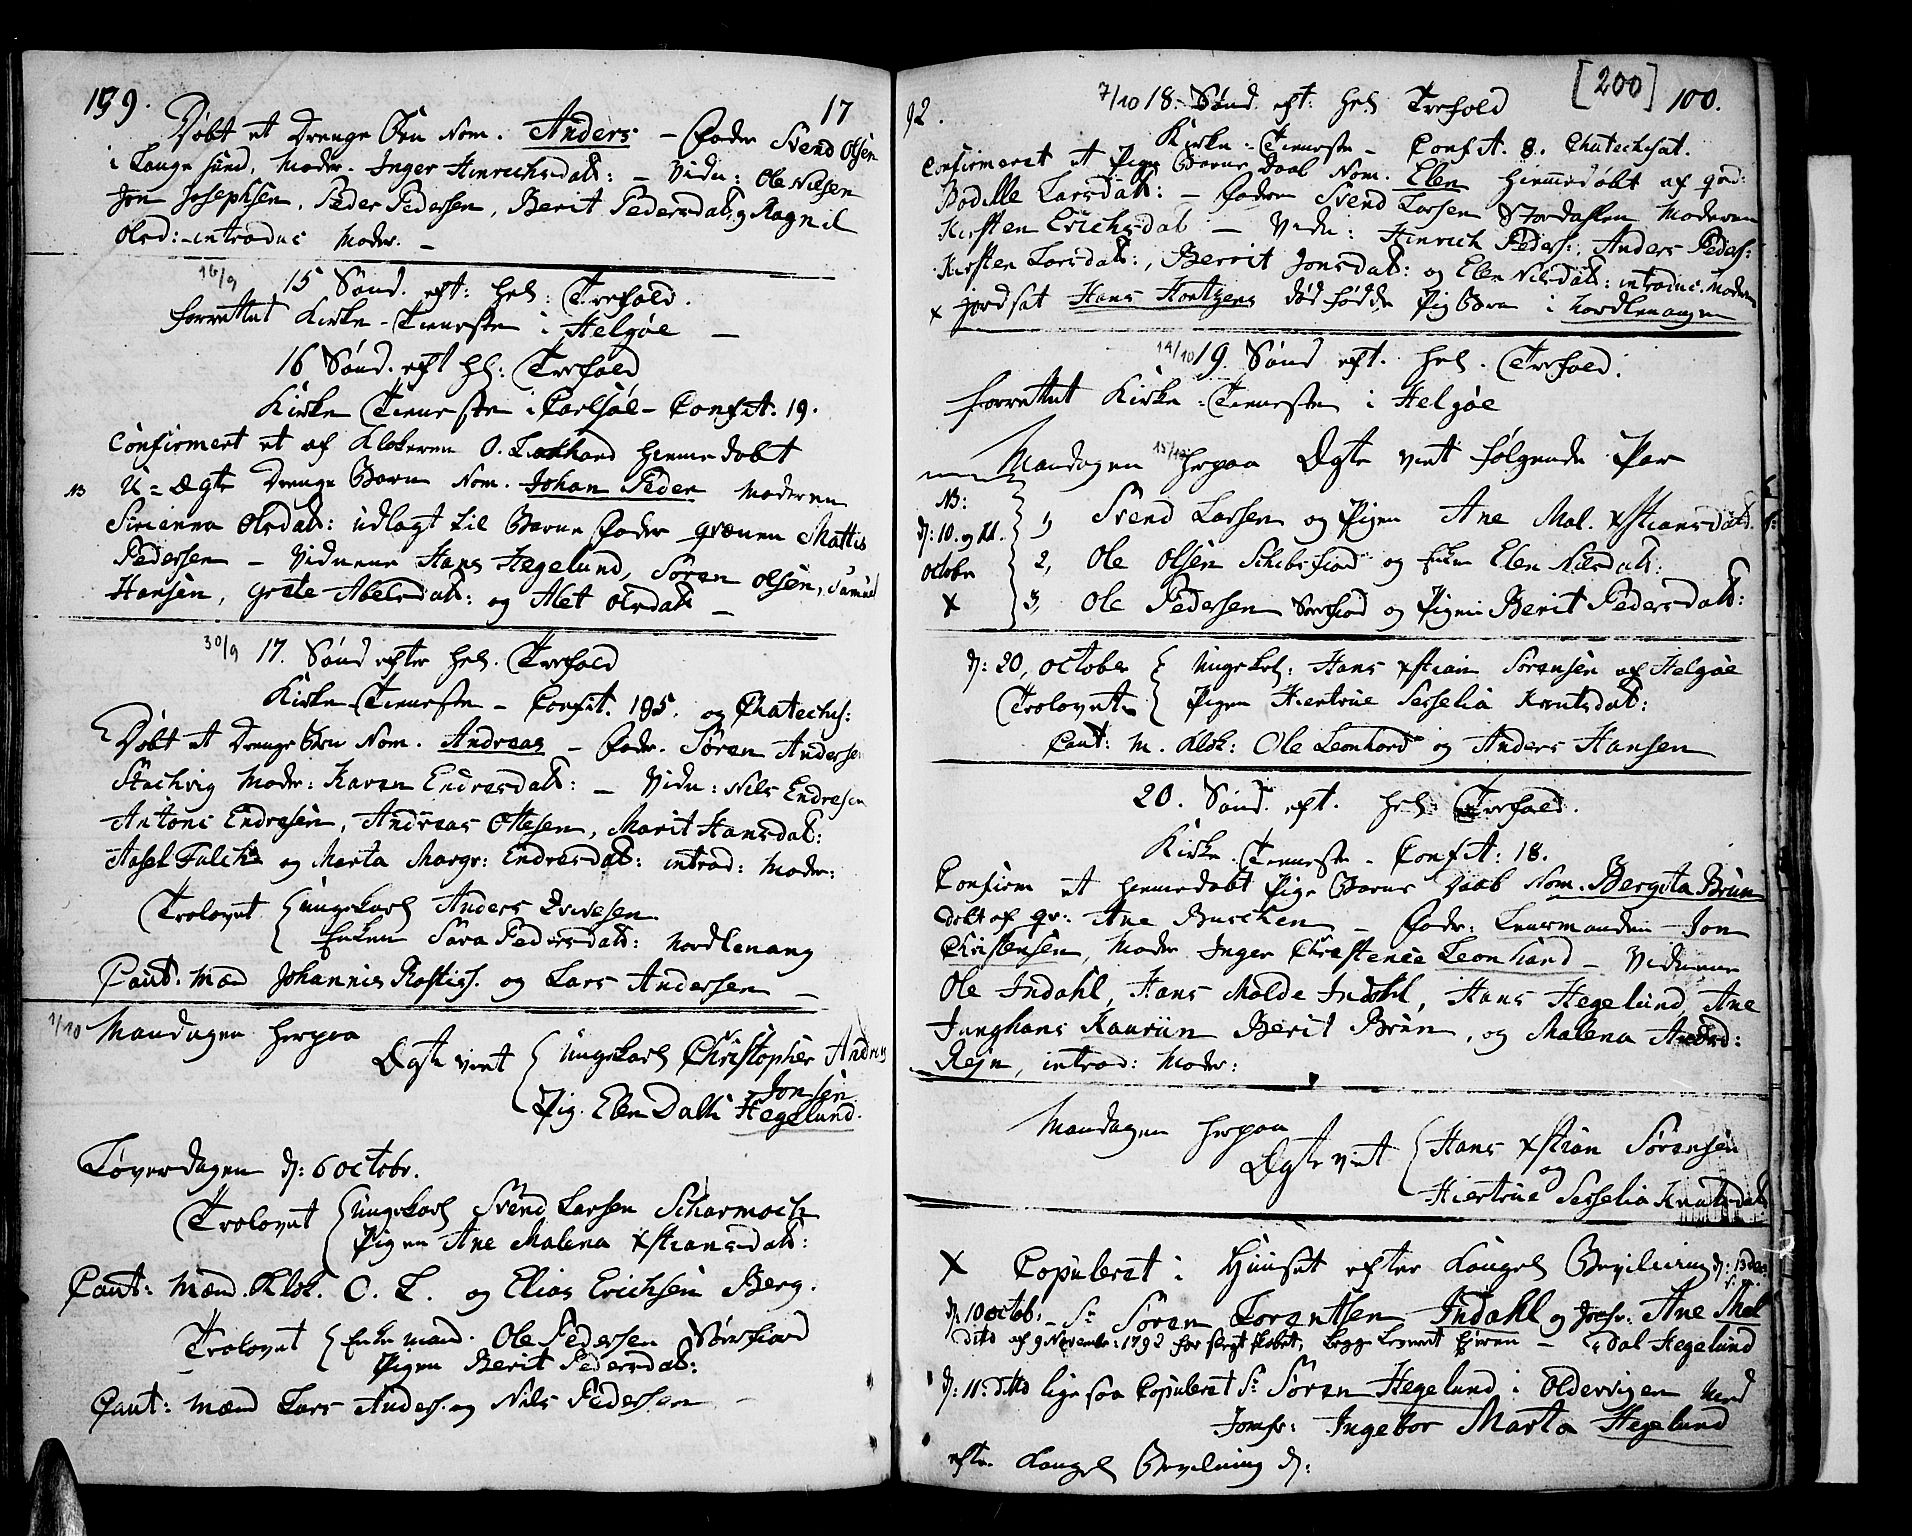 199. 17
Døbt et Drenge Bñ Nom. Anders - Fader Svend Olsen
i Lange sund, Moder. Inger Hinrichsdatt: - Vidn: Ole Nilsen
Jon Josephsen, Peder Pedersen, Berit Pedersdatt, og Ragnil
Olsd: - introduc Moder. -
16/9 15 Sønd. eft: hel: Trefold.
forrettet Kirke-Tieneste i Helgøe -
16 Sønd. eft hel: Trefold
Kirke Tieneste i Carlsøe - Confit: 19.
Confirmert et af Klokeren O. Leonhard hiemmedøbt
NB U=Ægte Drenge Barn Nom. Johan Peder Moderen
Sirianna Olsdatt: udlagt til Barne Fader Mattis
Pedersen - Vidnerne Hans Hegelund, Søren Olsen, Samuel
Hansen, Grete Abelsdatt: og Alet Olsdatt -
30/9 17. Sønd efter hel. Trefold
Kirke Tieneste - Confit. 195. og Chatechis:
Døbt et Drenge Bñ Nom. Andreas - Fader. Søren Andersen
Moder: Karen Endresdatt: - Vidn: Nils Endresen
Antoni Endresen, Andreas Ottesen, Marit Hansdatt:
Falch og Marta Margr: Endresdatt: introd: Moder:
Trolovet Ungekarl Anders
Enken Sara Pedersdatt: Nordlenang
Caut: Mænd Johannis og Lars Andersen -
1/10 Mandagen herpaa
Ægte viet Ungekarl Christopher Andreas
Jonsen
Pig. Elen Datti Hegelund.
Løverdagen d: 6 octobr.
Trolovet Ungekarl Svend Larsen
Pigen Ane Malena Xstiansdatt:
Caut: Mænd. Klok. O. L. og Elias Erichsen Berg.
Trolovet Enkemand. Ole Pedersen Sørfiord
Pigen Berit Pedersdatt:
Caut: Mænd Lars Anders. og Nils Pedersen -
92. 7/10 18. Sønd. eft: hel Trefold [200] 100.
Kirke-Tieneste - Confit. 8. Chatechisat.
Confirmeret et Pige Barns Daab Nom. Elen hiemmedøbt af
Bodille Larsdatt: - Faderen Svend Larsen Stordahlen Moderen
Kirsten Erichsdatt - Vidn: Hinrich Peders:, Anders Peders:
Kirsten Larsdatt:, Berrit Jonsdatt: og Elen Nilsdatt: introduc. Moderen
x Jordsat Hans død fødde Pig Barn i Nordlenangen
14/10 19. Sønd eft. hel. Trefold.
forrettet Kirke-Tieneste i Helgøe
Mandagen 15/10 herpaa Ægte viet følgende Par
NB: 1, Svend Larsen og Pigen Ane Mal. Xstiansdatt.
d: 10. og 11. 2, Ole Olsen og Enken Elen Nilsdatt:
October
X 3, Ole Pedersen Sørfiord og Pigen Berit Pedersdatt:
d: 20, october Ungekrl: Hans Xstian Sørensen af Helgøe
Trolovet Pigen Hiertrue Sesselia Knutsdatt:
Caut: M. Klok: Ole Leonhard og Anders Hansen
20. Sønd. eft. hel Trefold.
Kirke-Tieneste - Confit: 18.
Confirm et hiemmedøbt Pige Barns Daab Nom. Bergita Brun
døbt af Ane - Fader: Leensmanden Jon
Christensen, Moder Inger Christence Leonhard - Vidnerne
Ole Indahl, Hans Molde Indahl, Hans Hegelund, Ane
Junghans Kaurin Berit Brun, og Malena
introd: Moder:
Mandagen herpaa
Ægte viet Hans Xstian Sørensen
og
Hiertrue Sesselia Knutsdatt
X Copuleret i Huuset efter Kongel Bevilning
d: 10 octob: - Sr Søren Lorentsen Indahl og Jomfr: Ane Mal
-dal Hegelund
d: 11: Dito ligesaa Copuleret Sr Søren Hegelund i Oldervigen med
Jomfr: Ingebor Marta Hegelund
efter Kongel Bevilning d: